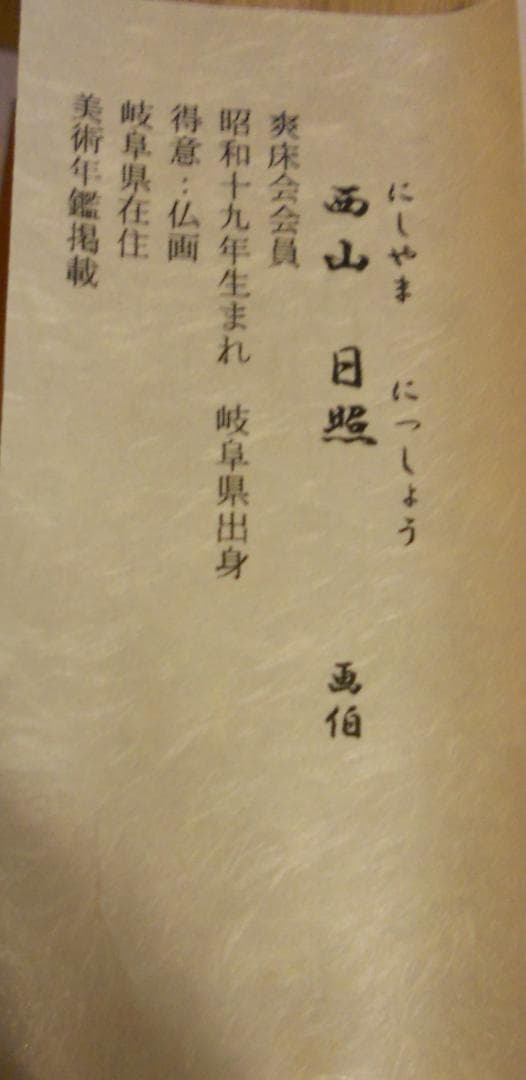 にしやま にっしょう
西山 日照 画伯
爽床会会員
昭和十九年生まれ 岐阜県出身
得意：仏画
岐阜県在住
美術年鑑掲載